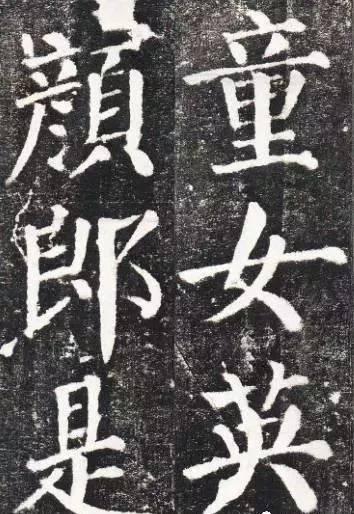 童女英
顔郎是